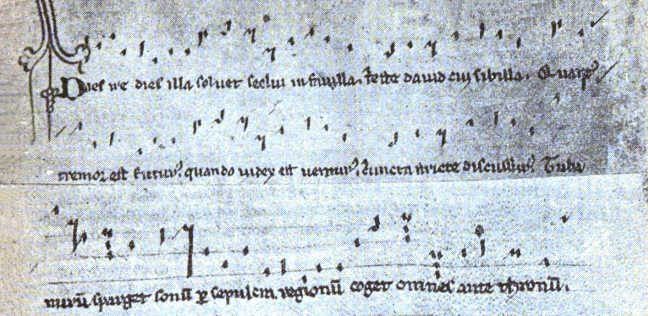 Dies ire dies illa soluet seclū in fauilla. teste dauid cū sibilla. Quantꝰ
tremor est futurꝰ. quando iudex est uenturꝰ. cuncta stricte discussurꝰ. Tuba
mirū sparget sonū ꝑ sepulcra regionū coget omnes ante thronū.